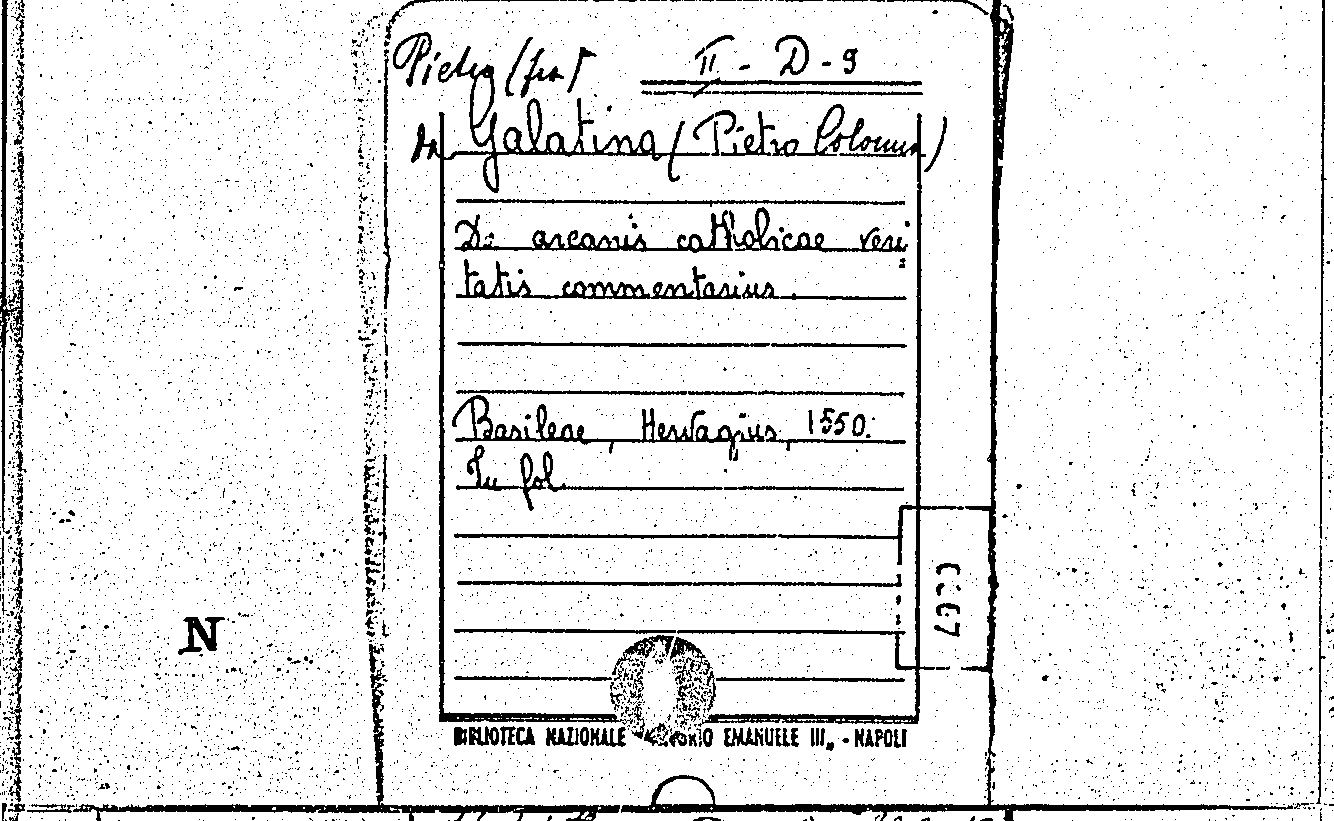 Pietro (fra)
II - D - 9
da Galatina (Pietro Colonna)
De arcanis catholicae veri
tatis commentarius.
Basileae, Hervagius, 1550.
In fol.
N
BIBLIOTECA NAZIONALE VITTORIO EMANUELE III„ - NAPOLI